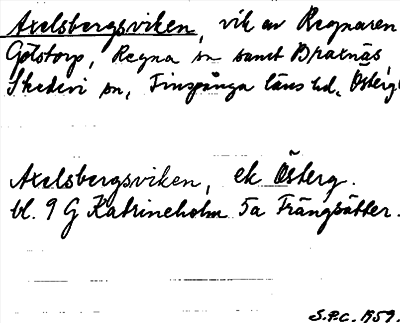 Axelsbergsviken, vik av Regnaren
Gölstorp, Regna sn samt Braxnäs
Skedevi sn, Finspånga läns hd, Österg
Axelsbergsviken, ek Österg.
bl. 9 G Katrineholm 5a Trängsätter.
S.P.C. 1959.